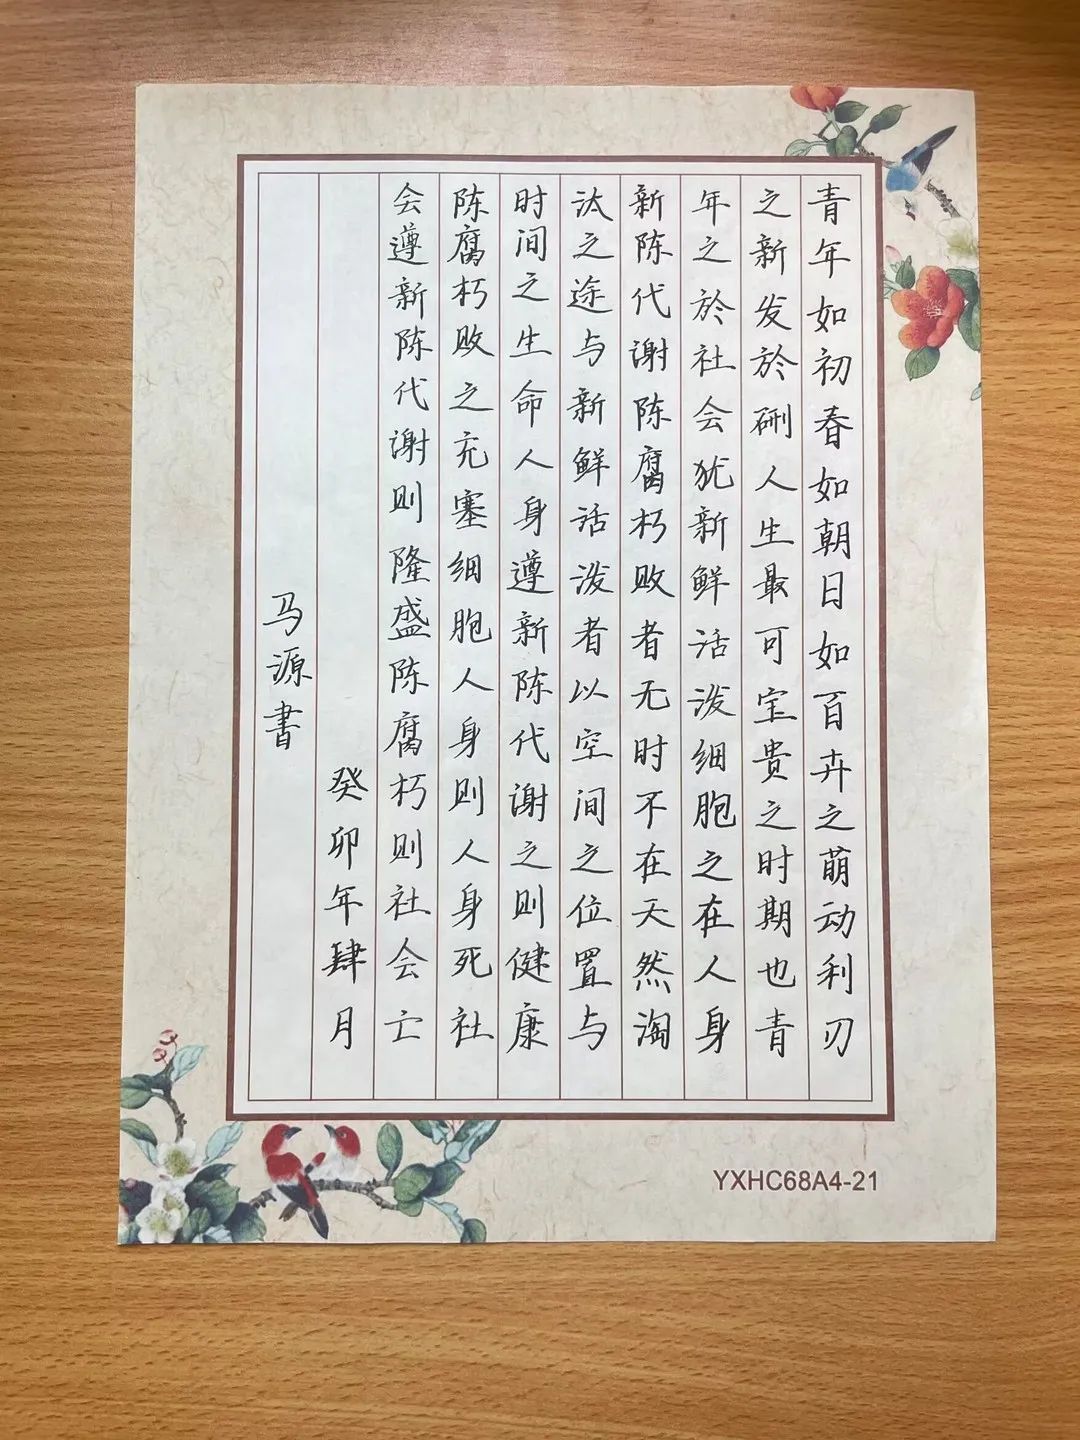 青年如初春如朝日如百卉之萌动利刃
之新发於硎人生最可宝贵之时期也青
年之於社会犹新鲜活泼细胞之在人身
新陈代谢陈腐朽败者无时不在天然淘
汰之途与新鲜活泼者以空间之位置与
时间之生命人身遵新陈代谢之则健康
陈腐朽败之充塞细胞人身则人身死社
会遵新陈代谢则隆盛陈腐朽则社会亡
癸卯年肆月
马源書
YXHC68A4-21